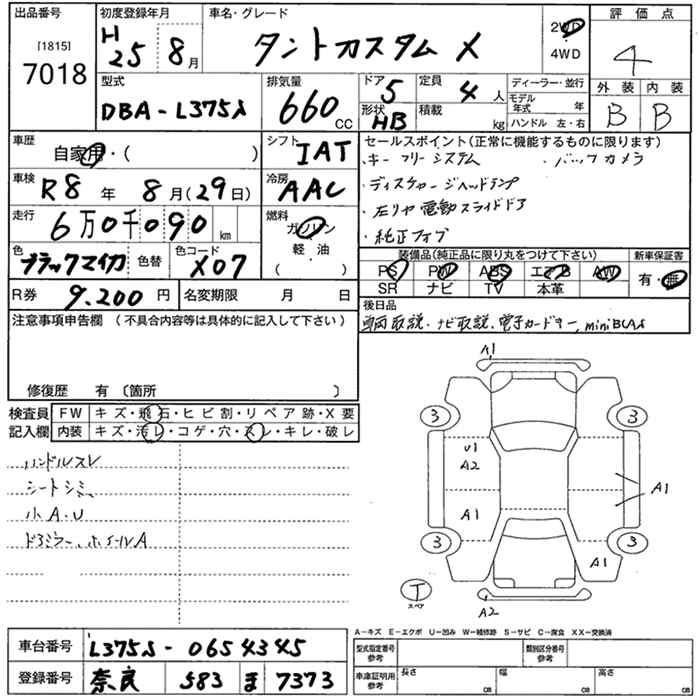 出品番号
[1815]
7018
初度登録年月
H 25 8月
車名・グレード
タントカスタム X
2WD
4WD
評価点
4
外装 内装
B B
型式
DBA-L375S
排気量
660 CC
ドア 5
形状 HB
定員 4人
積載 kg
ディーラー・並行
モデル年式 年
ハンドル 左・右
車歴
自家用・( )
シフト
IAT
車検
R8年 8月(29日)
冷房
AAC
走行
6万0千090 km
燃料
ガソリン
軽・油
( )
色
ブラックマイカ 色替
色コード
X07
R券 9,200円
名変期限 月 日
セールスポイント(正常に機能するものに限ります)
・キーフリーシステム ・バックカメラ
・ディスチャージヘッドランプ
・左リヤ電動スライドドア
・純正ナビ
装備品(純品に限り丸をつけて下さい)
PS PW ABS エアB AW
SR ナビ TV 本革
新車保証書
有・無
後日品
車両取説、ナビ取説、電子カードキー、
注意事項申告欄 (不具合内容等は具体的に記入して下さい)
修復歴 有 〔箇所 〕
検査員記入欄
FW キズ・飛石・ヒビ割・リペア跡・X要
内装 キズ・汚レ・コゲ・穴・スレ・キレ・破レ
ハンドルスレ
シートシミ
小A・U
ドアミラー、ホイールA
A1
3 3
U1
A2
A1
A1
3 3
A1
T
スペア
A2
A-キズ E-エクボ U-凹み W-補修跡 S-サビ C-腐食 XX-交換済
車台番号 L375S-0654345
登録番号 奈良 583 ま 7373
型式指定番号 参考
類別区分番号 参考
車庫証明用 参考
長さ cm 幅 cm 高さ cm